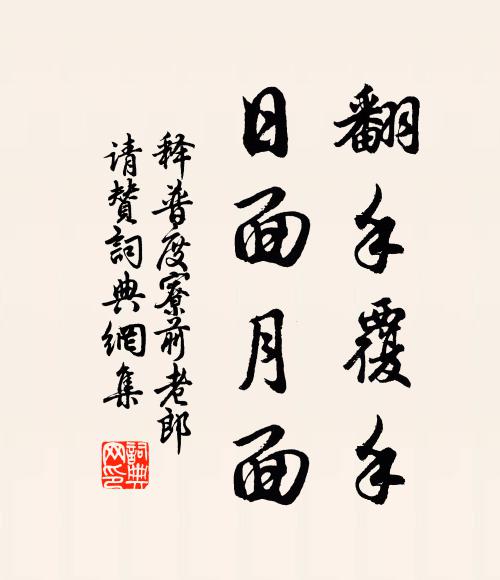 翻手覆手
日面月面
释普度寮前老郎
请赞詞典網集
詞典网印